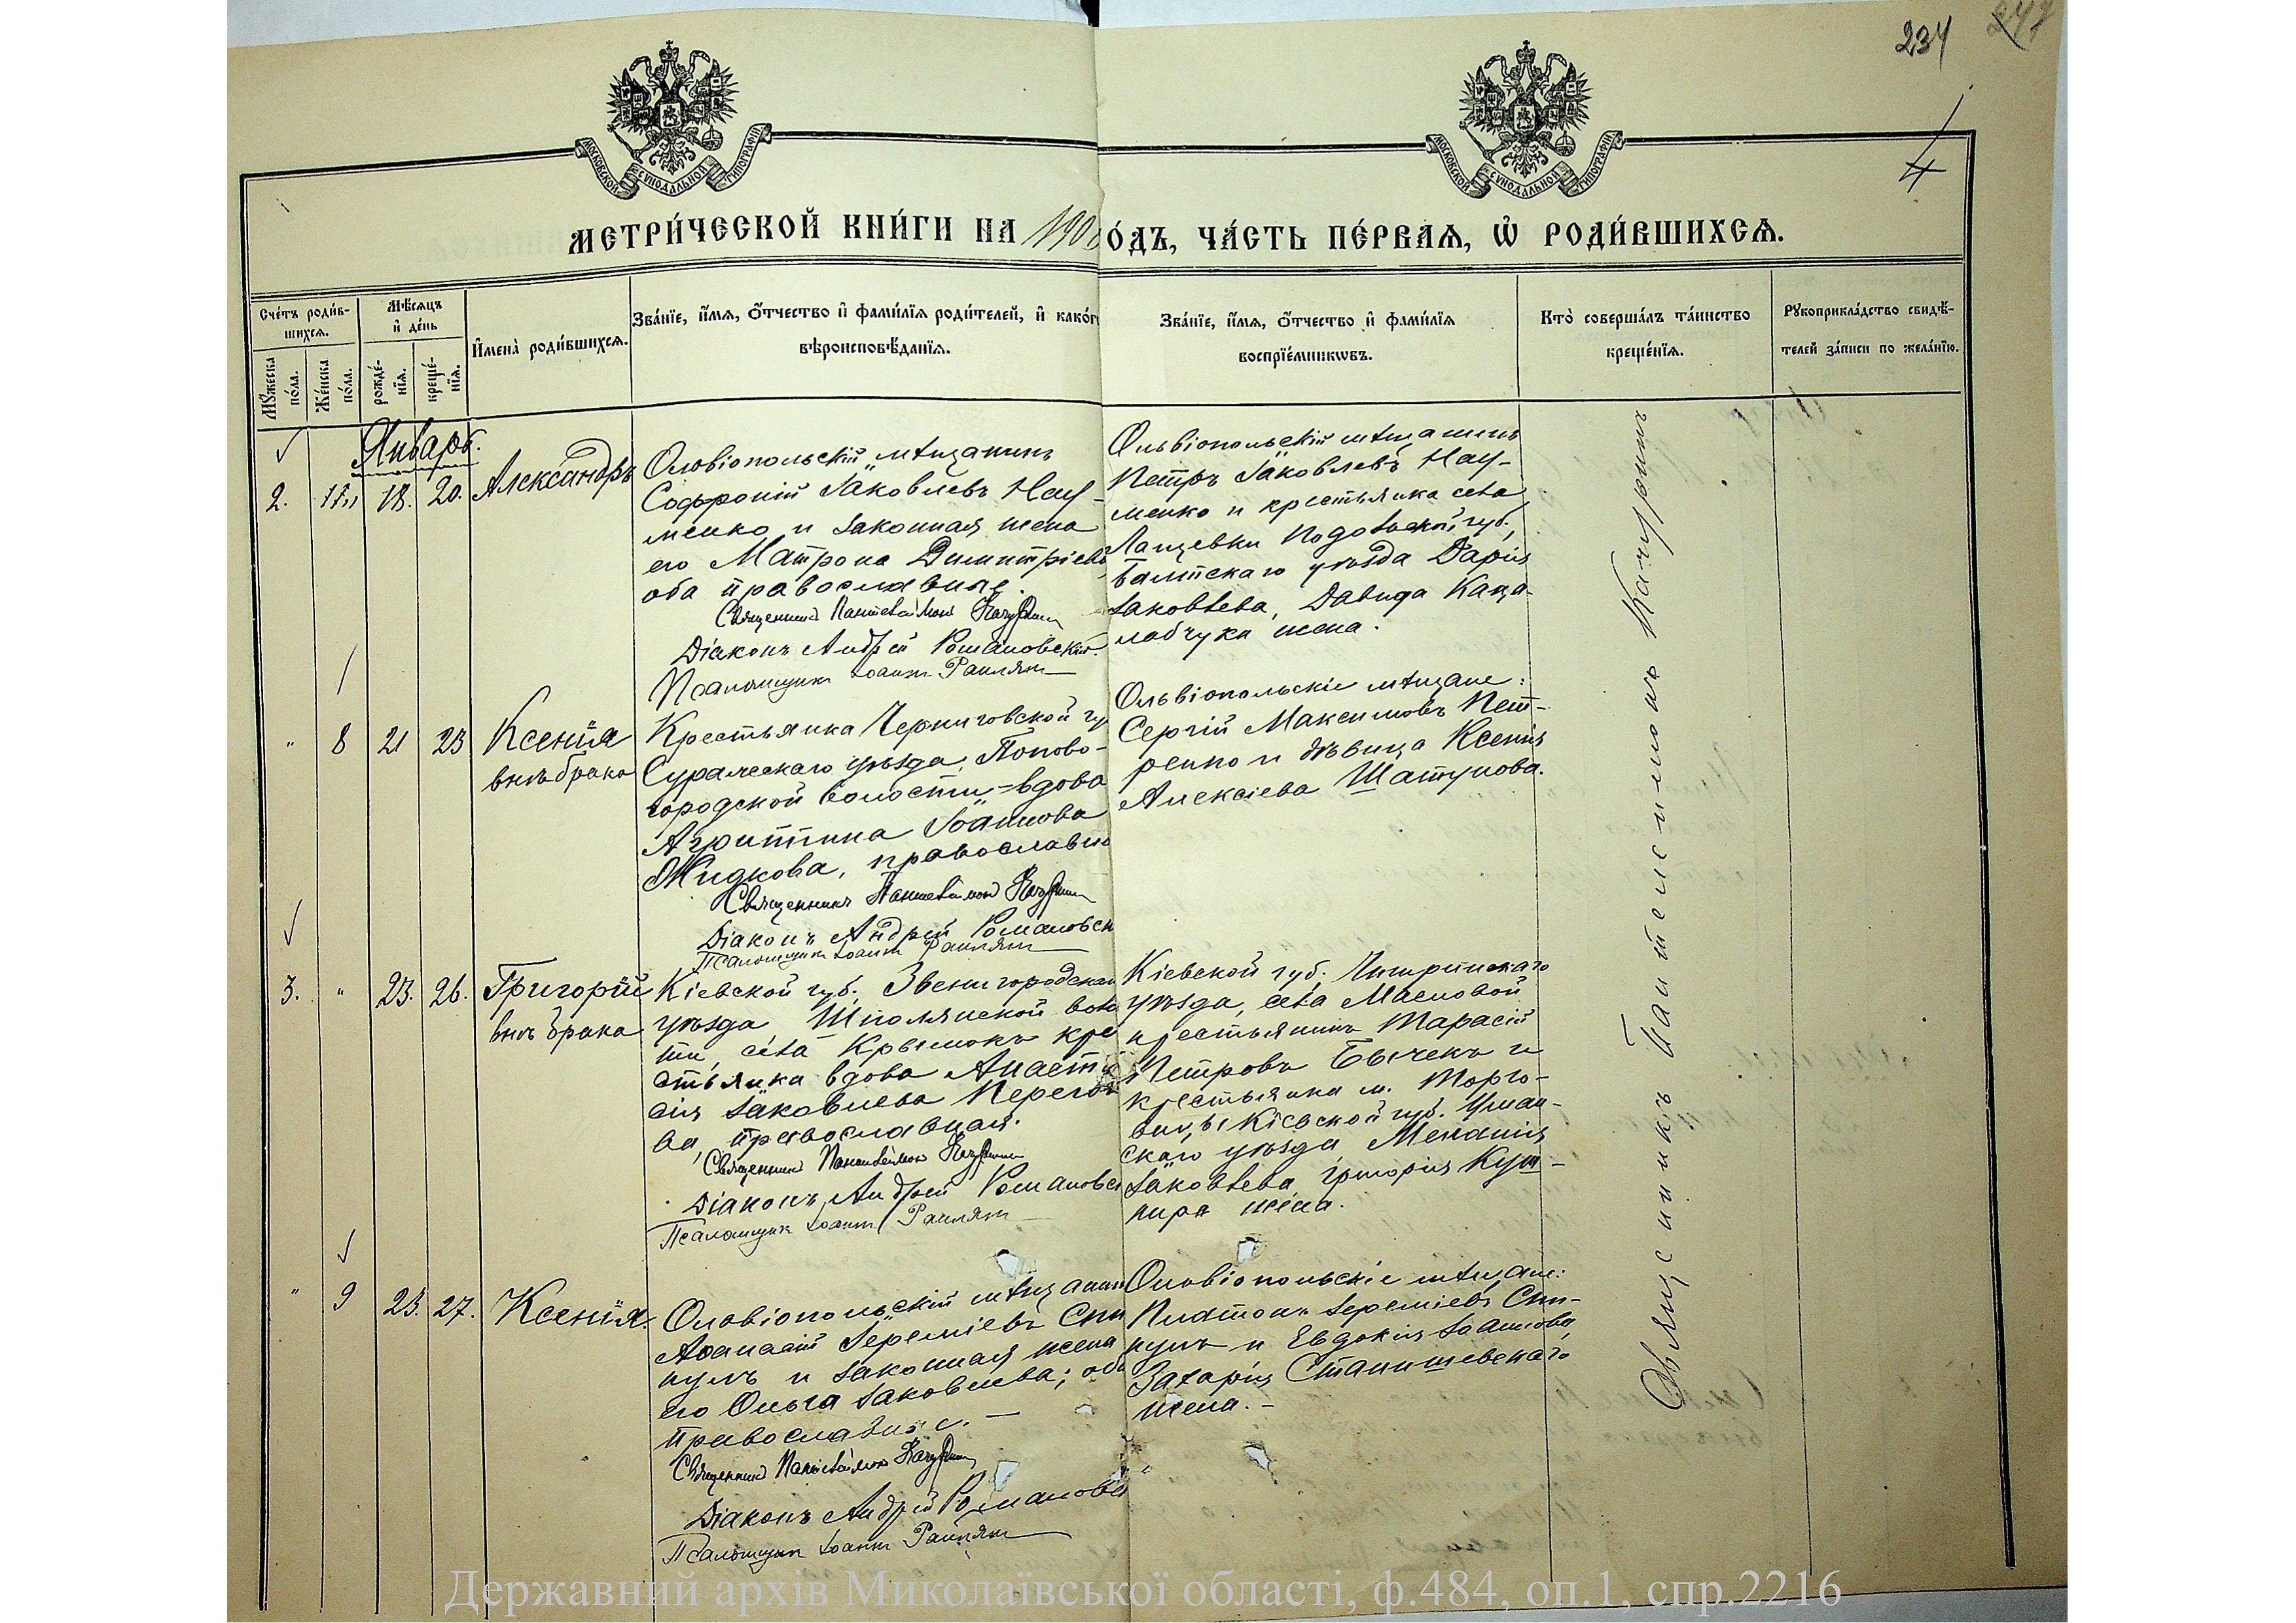 234 247
4
МОСКОВСКОЙ СѴНОДАЛЬНОЙ ТИПОГРАФІИ
МОСКОВСКОЙ СѴНОДАЛЬНОЙ ТИПОГРАФІИ
МЕТРИ́ЧЕСКОЙ КНИ́ГИ НА 190 О́ДЪ, ЧА́СТЬ ПЕ́РВАѦ, Ѡ҆ РОДИ́ВШИХСѦ.
Сче́тъ роди́в-
шихсѧ.
Мѣ́сѧцъ
и҆ де́нь
Мꙋ́жеска
по́ла.
Же́нска
по́ла.
рожде́-
нїѧ.
креще́-
нїѧ.
И҆мена̀ роди́вшихсѧ.
Зва́нїе, и҆́мѧ, ѻ҆́тчество и҆ фами́лїѧ роди́телей, и҆ како́г
вѣроисповѣ́данїѧ.
Зва́нїе, и҆́мѧ, ѻ҆́тчество и҆ фами́лїѧ
воспрїе́мникѡвъ.
Кто̀ соверша́лъ та́инство
креще́нїѧ.
Рꙋкоприкла́дство свидѣ́-
телей за́писи по жела́нїю.
Январь.
2. 18. 20. Александръ
Ольвіопольскій мѣщанинъ
Софроній Іаковлевъ Нау-
менко и законная жена
его Матрона Димитріева
оба православные.
Священникъ Пантелеймонъ Качуринъ
Діаконъ Андрей Романовскій
Псаломщикъ Іоаннъ
Ольвіопольскій мѣщанинъ
Петръ Іаковлевъ Нау-
менко и крестьянка села
Лащевки Подольской губ.,
Балтскаго уѣзда Дарія
Іаковлева, Давида Каца-
лабчука жена.
" 8 21 23 Ксенія
внѣ брака
Крестьянка Черниговской гу
Суражскаго уѣзда, Попово-
городской волости - вдова
Агриппина Іоаннова
Жидкова, православно
Священникъ Пантелеймонъ Качуринъ
Діаконъ Андрей Романовск
Псаломщикъ Іоаннъ
Ольвіопольскіе мѣщане:
Сергій Максимовъ Пет-
ренко и дѣвица Ксенія
Алексіева Шатунова.
3. " 23. 26. Григорій
внѣ брака
Кіевской губ. Звенигородскаг
уѣзда, Шполянской воло
сти, села Крымокъ кре
стьянка вдова Анаста
сія Іаковлева
ва, православная.
Священникъ Пантелеймонъ Качуринъ
Діаконъ Андрей Романовск
Псаломщикъ Іоаннъ
Кіевской губ. Чигринскаго
уѣзда, села Масловой
крестьянинъ Тарасій
Петровъ Бычекъ и
крестьянка м. Торго-
вицы Кіевской губ. Уман-
скаго уѣзда, Меланія
Іаковлева, Григорія Куш-
нира жена.
" 9 23. 27. Ксенія.
Ольвіопольскій мѣщанин
Афанасій Іереміевъ Син
нулъ и законная жена
его Ольга Іаковлева; оба
православные. —
Священникъ Пантелеймонъ Качуринъ
Діаконъ Андрей Романовск
Псаломщикъ Іоаннъ
Ольвіопольскіе мѣщане:
Платонъ Іереміевъ
и Евдокія Іоаннова,
Захарія Станишевскаго
жена. —
Священникъ Пантелеимонъ Качуринъ
Державний архів Миколаївської області, ф.484, оп.1, спр.2216